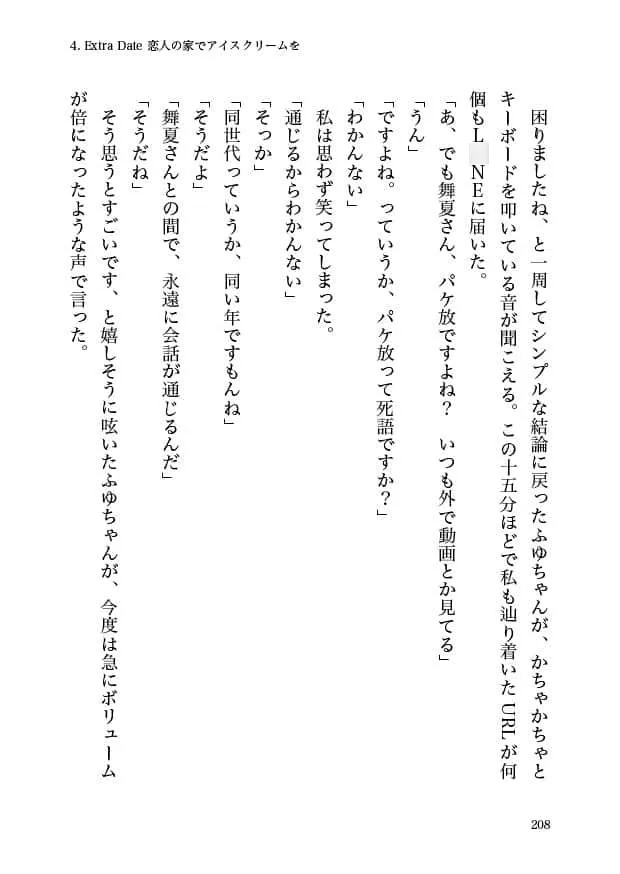 4. Extra Date 恋人の家でアイスクリームを
　困りましたね、と一周してシンプルな結論に戻ったふゆちゃんが、かちゃかちゃと
キーボードを叩いている音が聞こえる。この十五分ほどで私も辿り着いた URL が何
個もL NEに届いた。
「あ、でも舞夏さん、パケ放ですよね？　いつも外で動画とか見てる」
「うん」
「ですよね。っていうか、パケ放って死語ですか？」
「わかんない」
　私は思わず笑ってしまった。
「通じるからわかんない」
「そっか」
「同世代っていうか、同い年ですもんね」
「そうだよ」
「舞夏さんとの間で、永遠に会話が通じるんだ」
「そうだね」
　そう思うとすごいです、と嬉しそうに呟いたふゆちゃんが、今度は急にボリューム
が倍になったような声で言った。
208